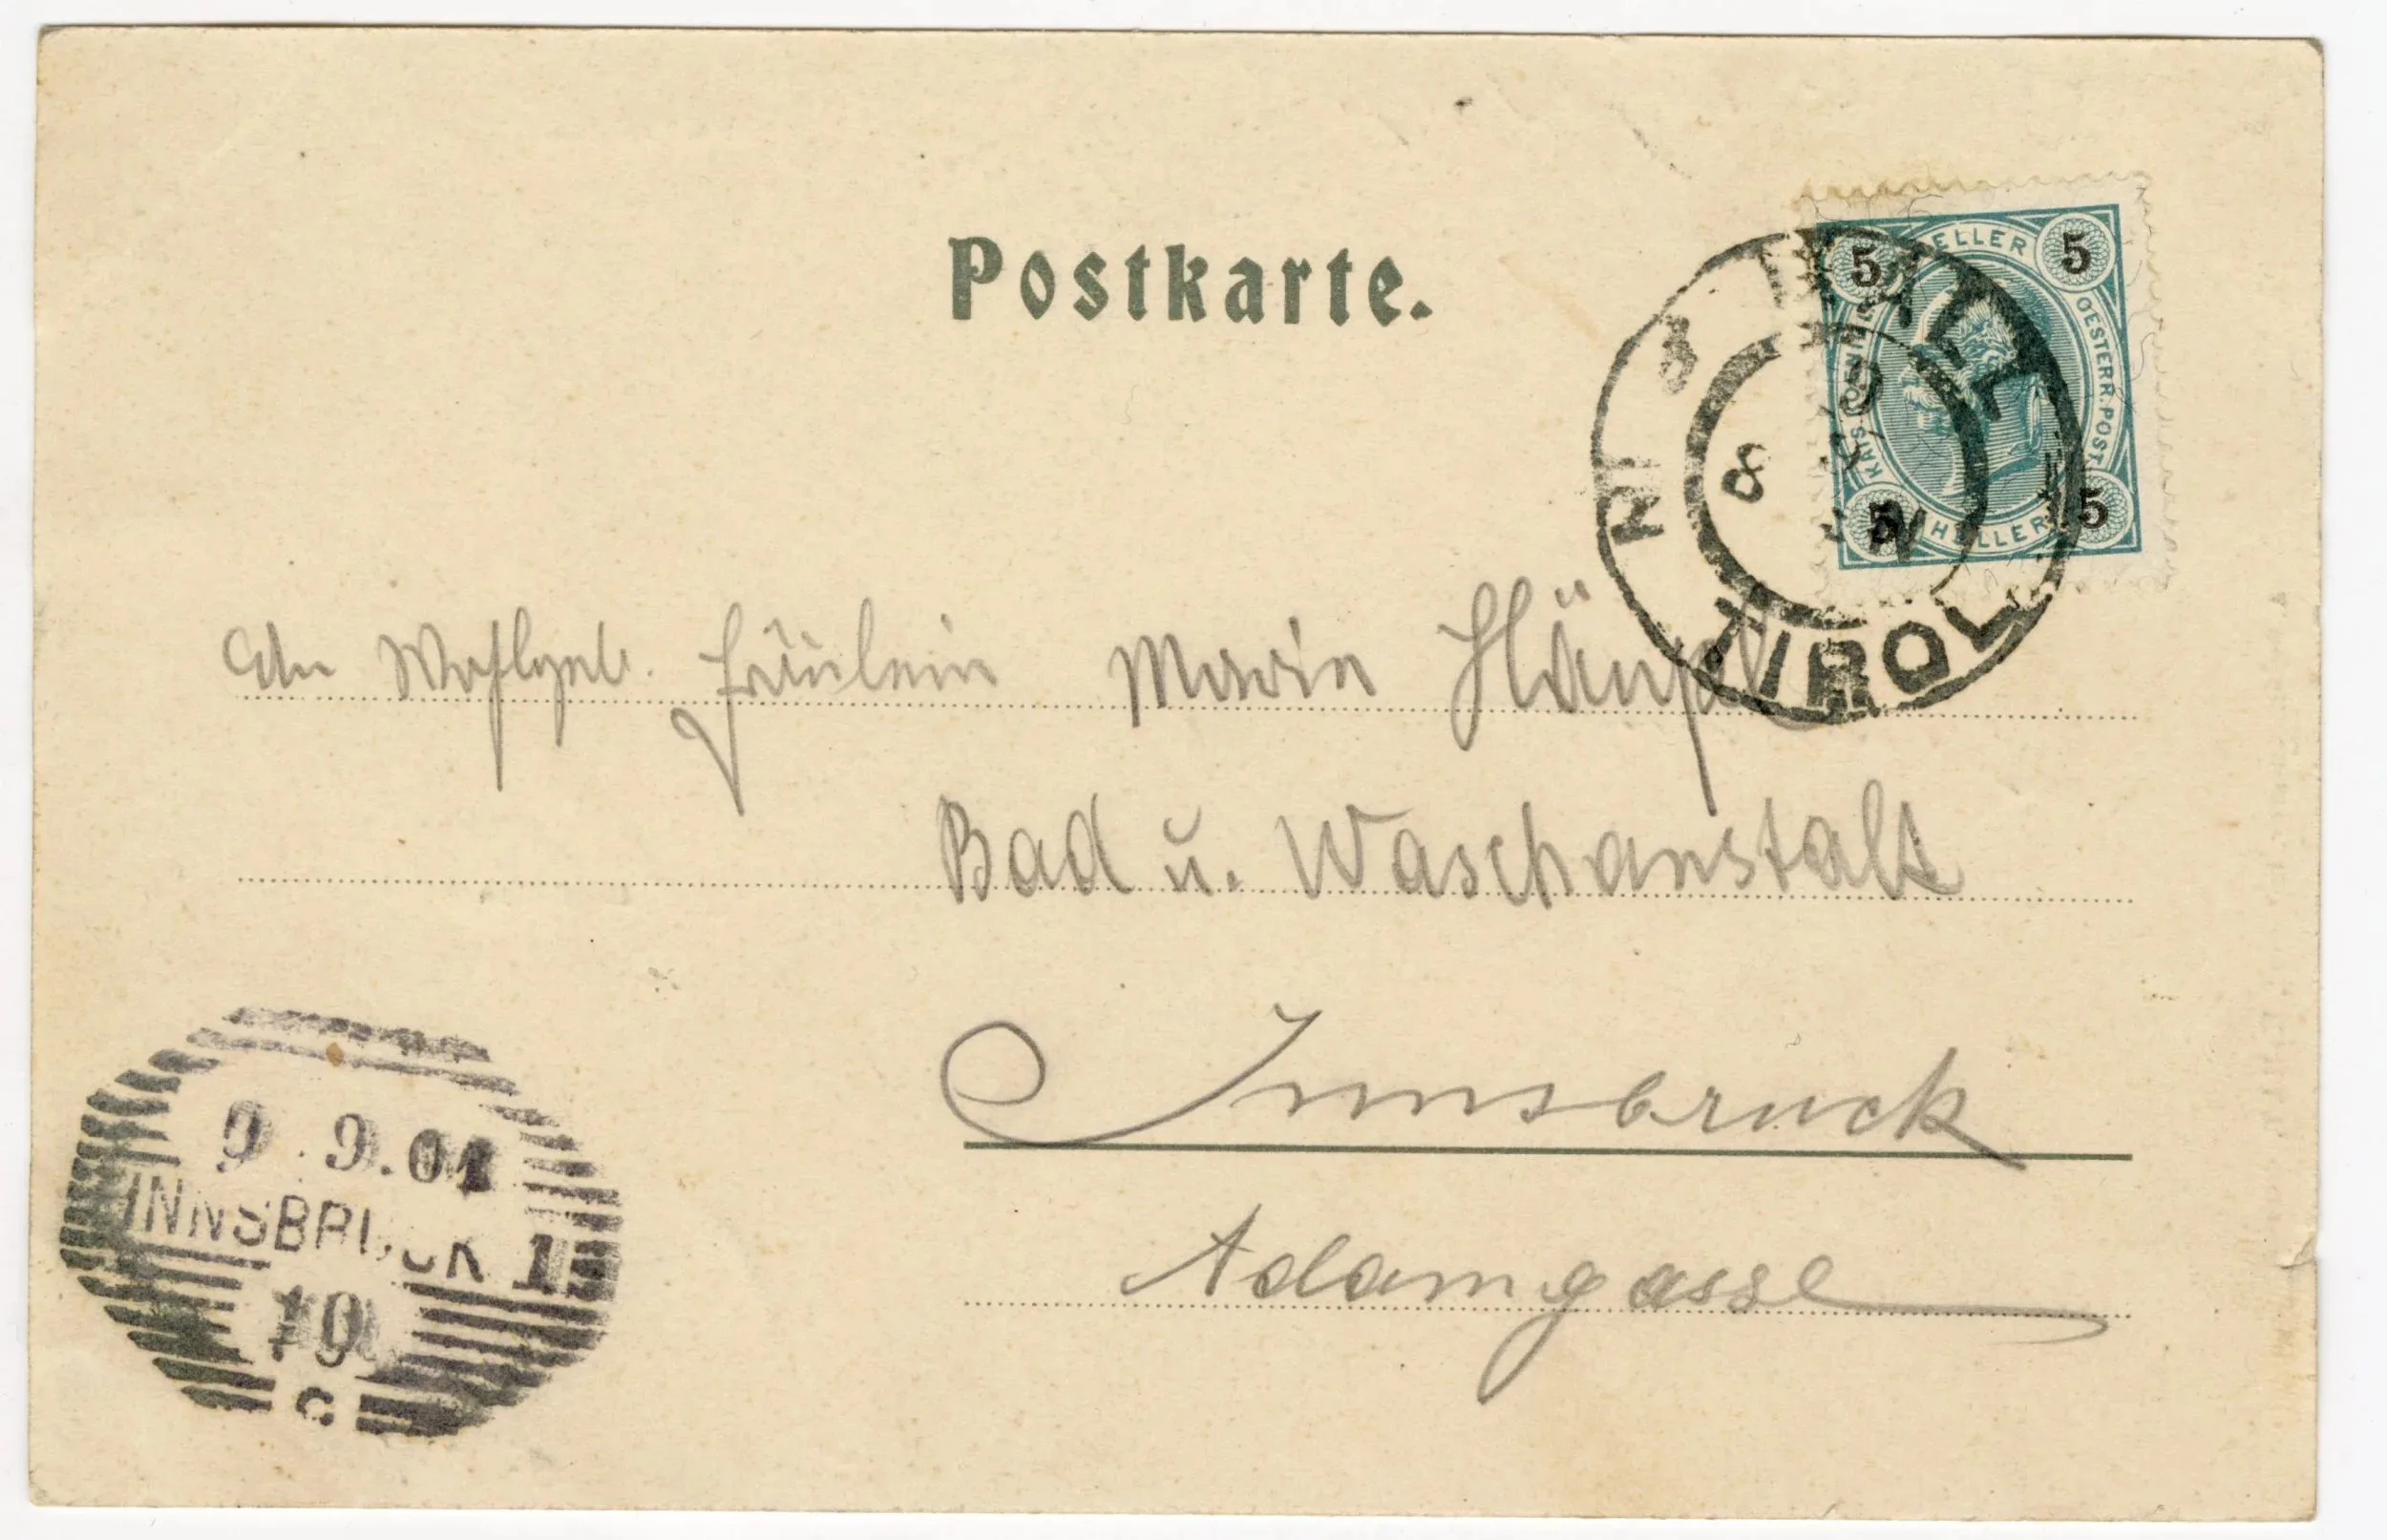 Postkarte.
5 HELLER 5
KAIS. KÖNIGL.
OESTERR. POST.
5 HELLER 5
HALL
IN
8
TIROL
An Wohlgeb. Fräulein Marie
Bad u. Waschanstalt
Innsbruck
Adamgasse
9.9.01
INNSBRUCK 1
10
c